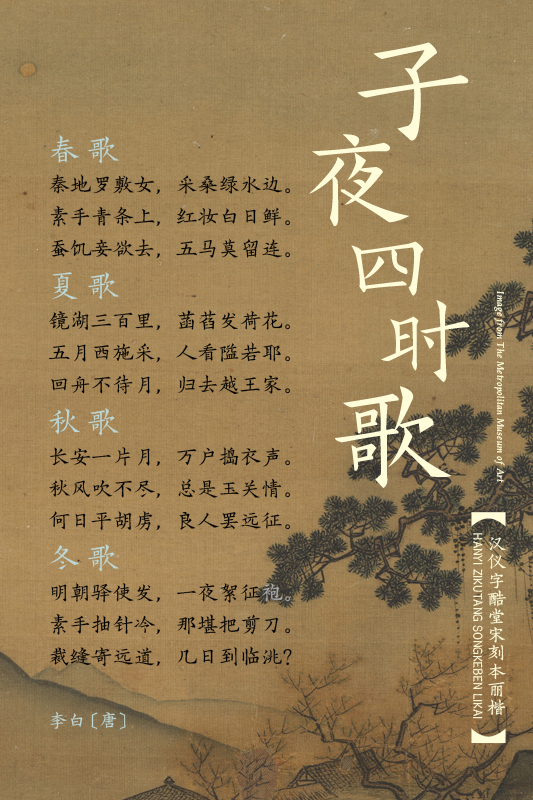 子夜四时歌
春歌
秦地罗敷女，采桑绿水边。
素手青条上，红妆白日鲜。
蚕饥妾欲去，五马莫留连。
夏歌
镜湖三百里，菡萏发荷花。
五月西施采，人看隘若耶。
回舟不待月，归去越王家。
秋歌
长安一片月，万户捣衣声。
秋风吹不尽，总是玉关情。
何日平胡虏，良人罢远征。
冬歌
明朝驿使发，一夜絮征袍。
素手抽针冷，那堪把剪刀。
裁缝寄远道，几日到临洮？
李白〔唐〕
Image from The Metropolitan Museum of Art
【汉仪字酷堂宋刻本丽楷
HANYI ZIKUTANG SONGKEBEN LIKAI】